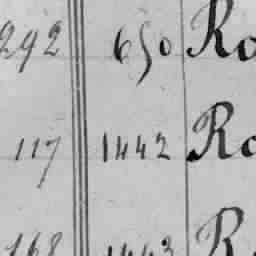 292 650 Ro
117 1442 Ro
168 1443 R